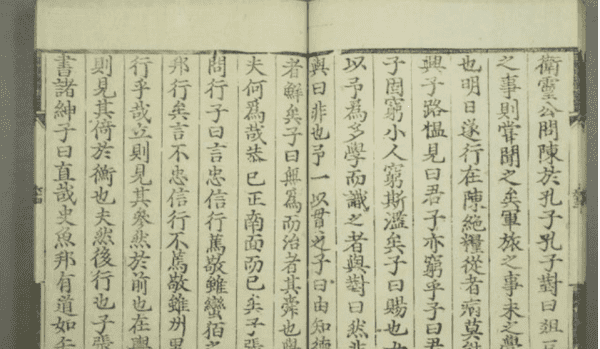 衛靈公問陳於孔子孔子對曰俎豆
之事則嘗聞之矣軍旅之事未之學
也明日遂行在陳絶糧從者病莫能
興子路慍見曰君子亦窮乎子曰君
子固窮小人窮斯濫矣子曰賜也女
以予爲多學而識之者與對曰然非
與曰非也予一以貫之子曰由知德
者鮮矣子曰無爲而治者其舜也與
夫何爲哉恭已正南面而已矣子張
問行子曰言忠信行篤敬雖蠻貊之
邦行矣言不忠信行不篤敬雖州里
行乎哉立則見其參然於前也在輿
則見其倚於衡也夫然後行也子張
書諸紳子曰直哉史魚邦有道如矢